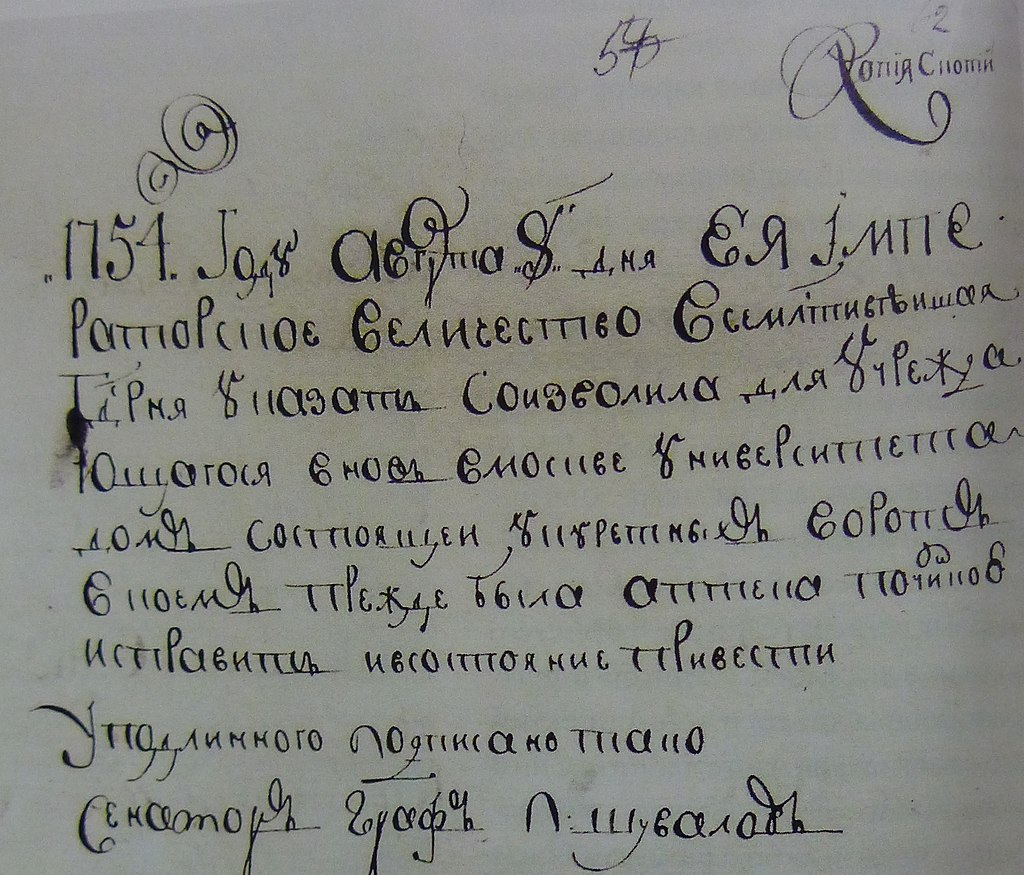 54
Копія Скопїи
1754. Году августа 8. дня ЕЯ IМПЕ
раторское величество всемлтивѣишая
Гдрня указать соизволила для учрежда
ющагося вновь вмоскве университета
домъ состоящеи укуретныхъ воротъ
вкоемъ прежде была аптека починкою
исправить ивсостояние привести
Уподлинного подписано тако
Сенаторъ Графъ П: шуваловъ